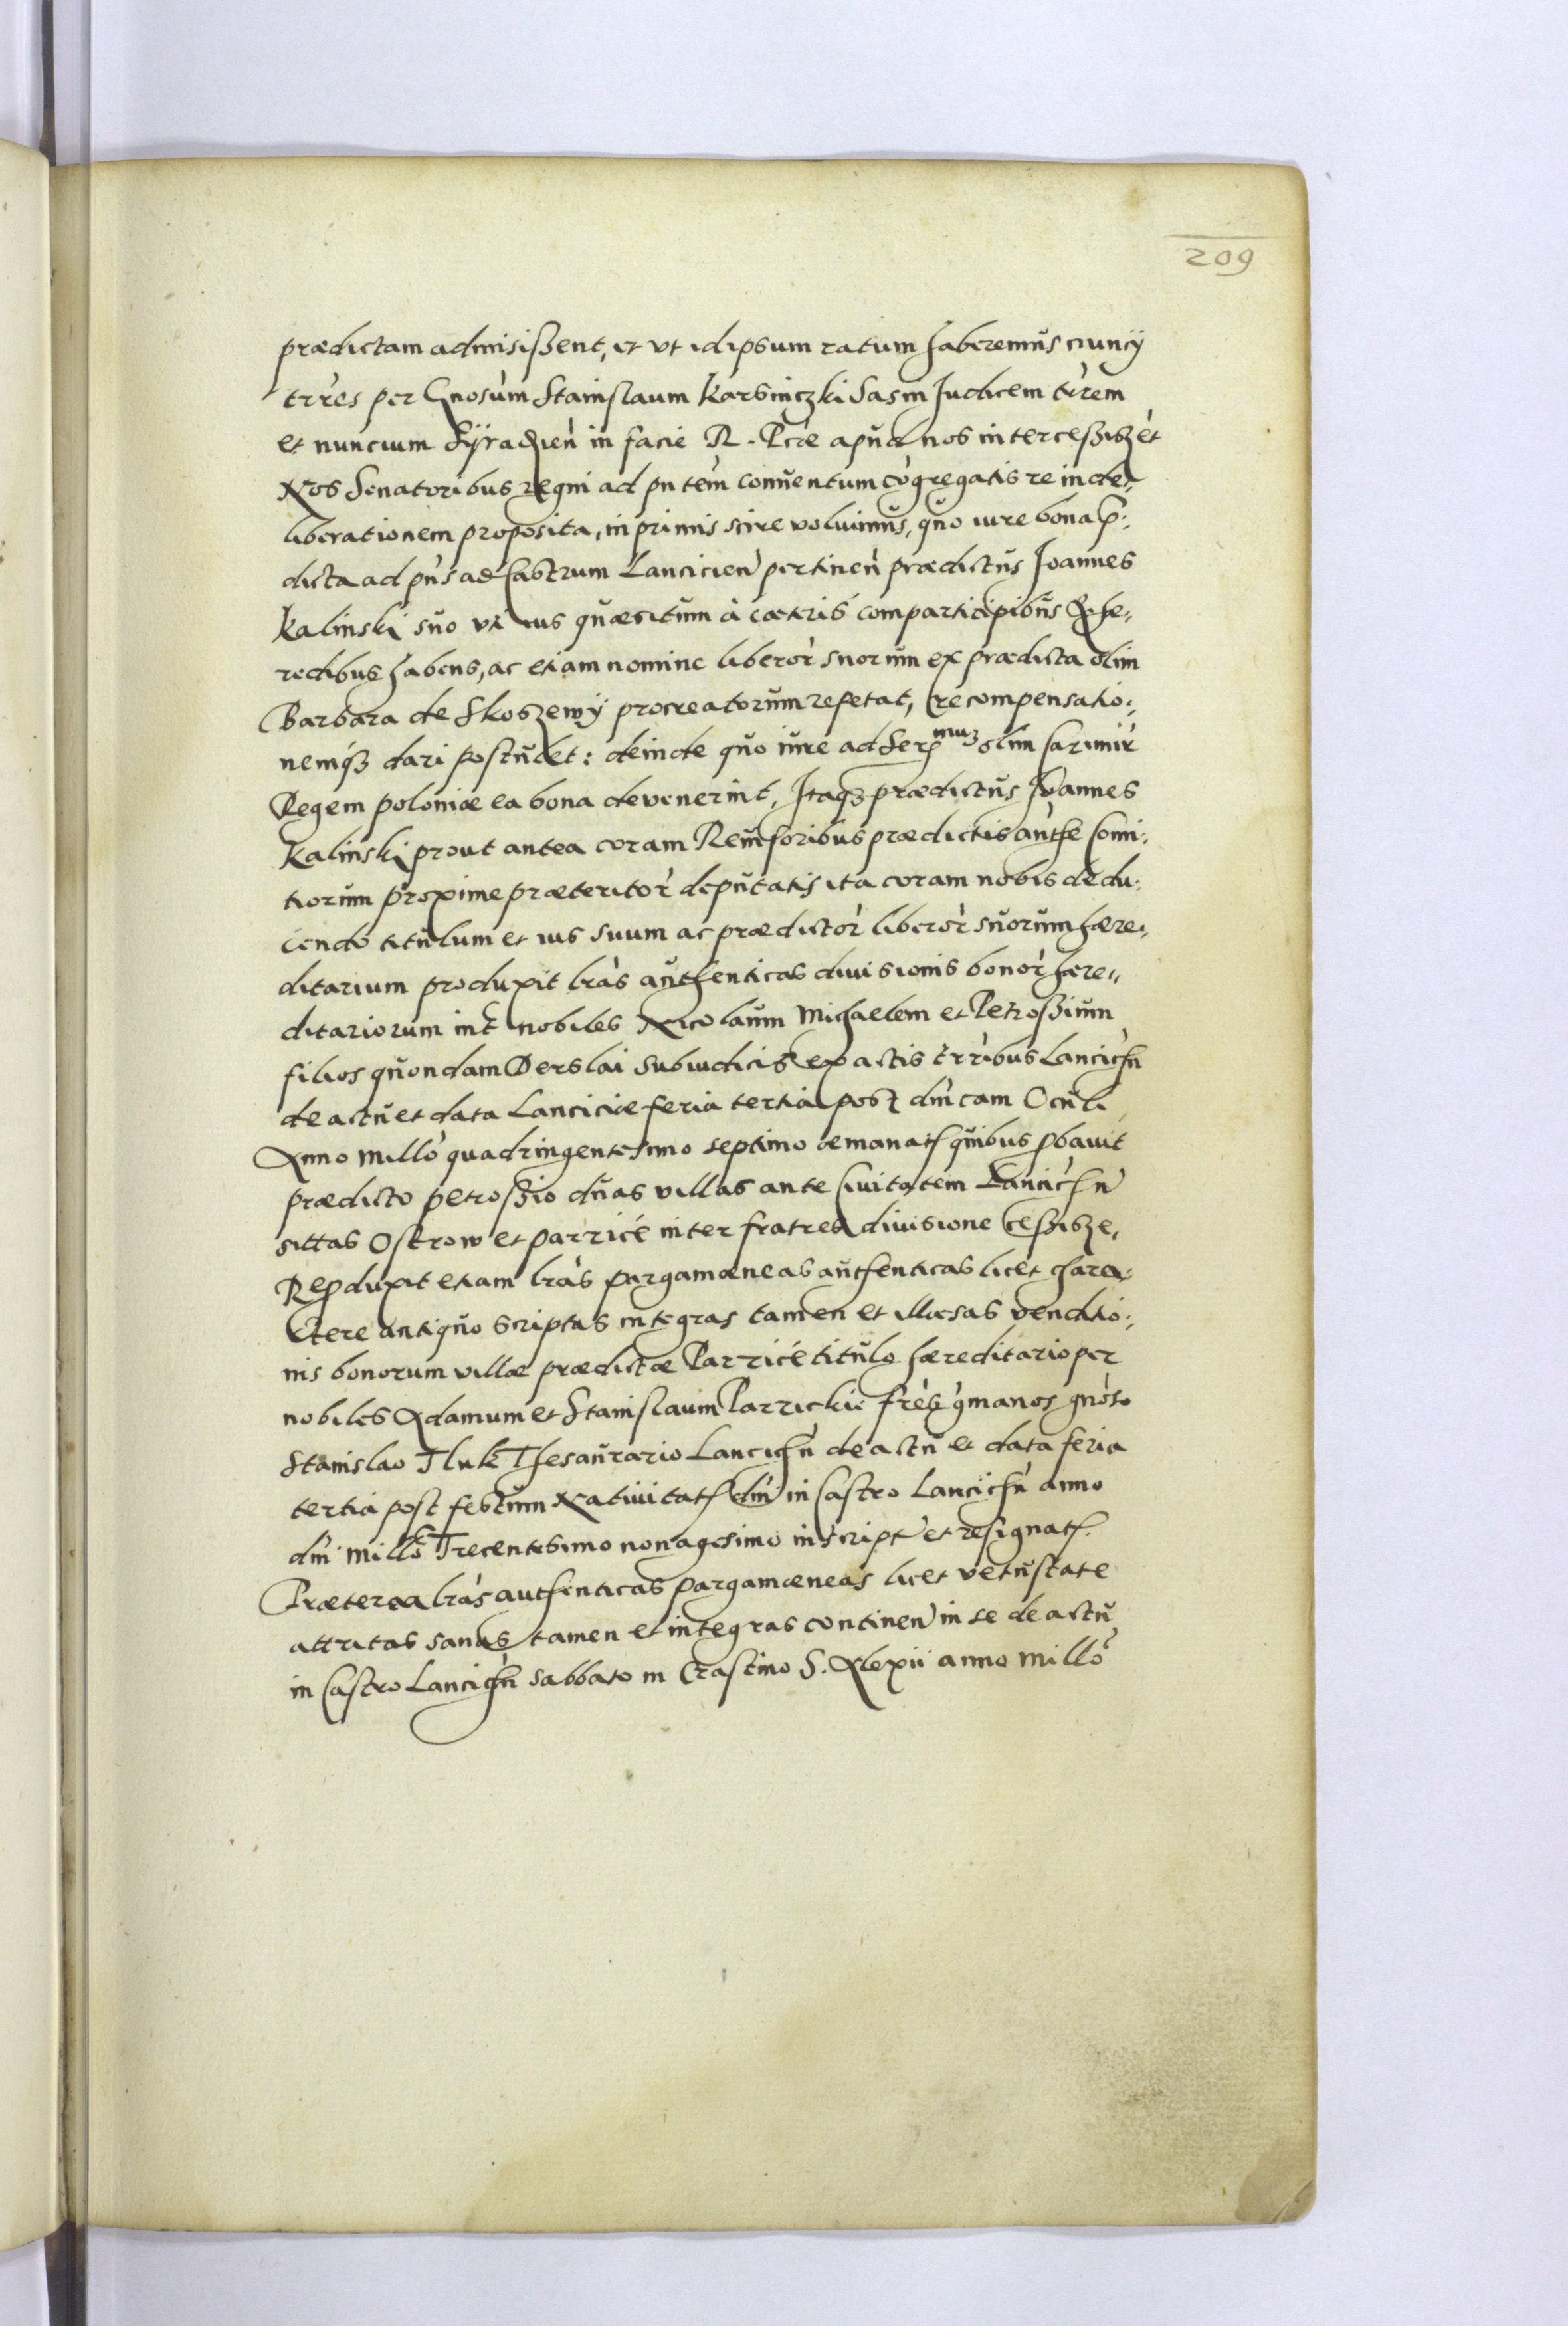 209
prædictam admisissent, et ut idipsum ratum haberemus nuncij
trres per Gnosum Stanislaum Karsniczki Sasin Judicem trrem
et nuncium Syradien in facie R. Pcæ apud nos intercessissēt
Nos Senatoribus regni ad pntem conventum cōgregatis re in de-
liberationem proposita, inprimis scire voluimus, quo iure bona p:
dicta ad pns ad Castrum Lancicien pertinen prædictus Joannes
Kalinski suo vt ius quæsitum à cæteris comparticipibus & he-
redibus habens, ac etiam nomine liberor suorum ex prædicta olim
Barbara de Skoszewy procreatorum repetat, recompensatio-
nemq3 dari postulet: deinde quo iure ad Ser mu3 olim Cazimir
Regem poloniæ ea bona devenerint, Itaq3 prædictus Joannes
Kalinski prout antea coram Revisoribus prædictis auth Comi-
tiorum proxime præteritor deputatis ita coram nobis dedu-
cendo titulum et ius suum ac prædictor liberor suorum hære-
ditarium produxit lras authenticas divisionis bonor hære-
ditariorum int nobiles Nicolaum Michaelem et Petrossium
filios quondam Derslai Subiudicis ex actis trribus Lancicīn
de actu et data Lanciciæ feria tertia post dnicam Oculi
Anno millō quadringentesimo septimo emanat quibus pbavit
prædicto petrossio duas villas ante Civitatem Lancicīn
sittas Ostrow et parzicé inter fratres divisione cessisse,
Rep duxit etiam lras pargamæneas authenticas licet chara-
ctere antiquo scriptas integras tamen et illæsas venditio-
nis bonorum villæ prædictæ Parzicé titulo hæreditario per
nobiles Adamum et Stanislaum Parzickie frēs gmanos gnoso
Stanislao Tluk Thesaurario Lancicn de actu et data feria
tertia post festum Nativitat dni in Castro Lancicīn anno
dni millō Trecentesimo nonagesimo inscript et resignat.
Præterea lras authenticas pargamæneas licet vetustate
attritas sanas tamen et integras continen in se de actu
in Castro Lancicn sabbato in Crastino S. Alexii anno millō